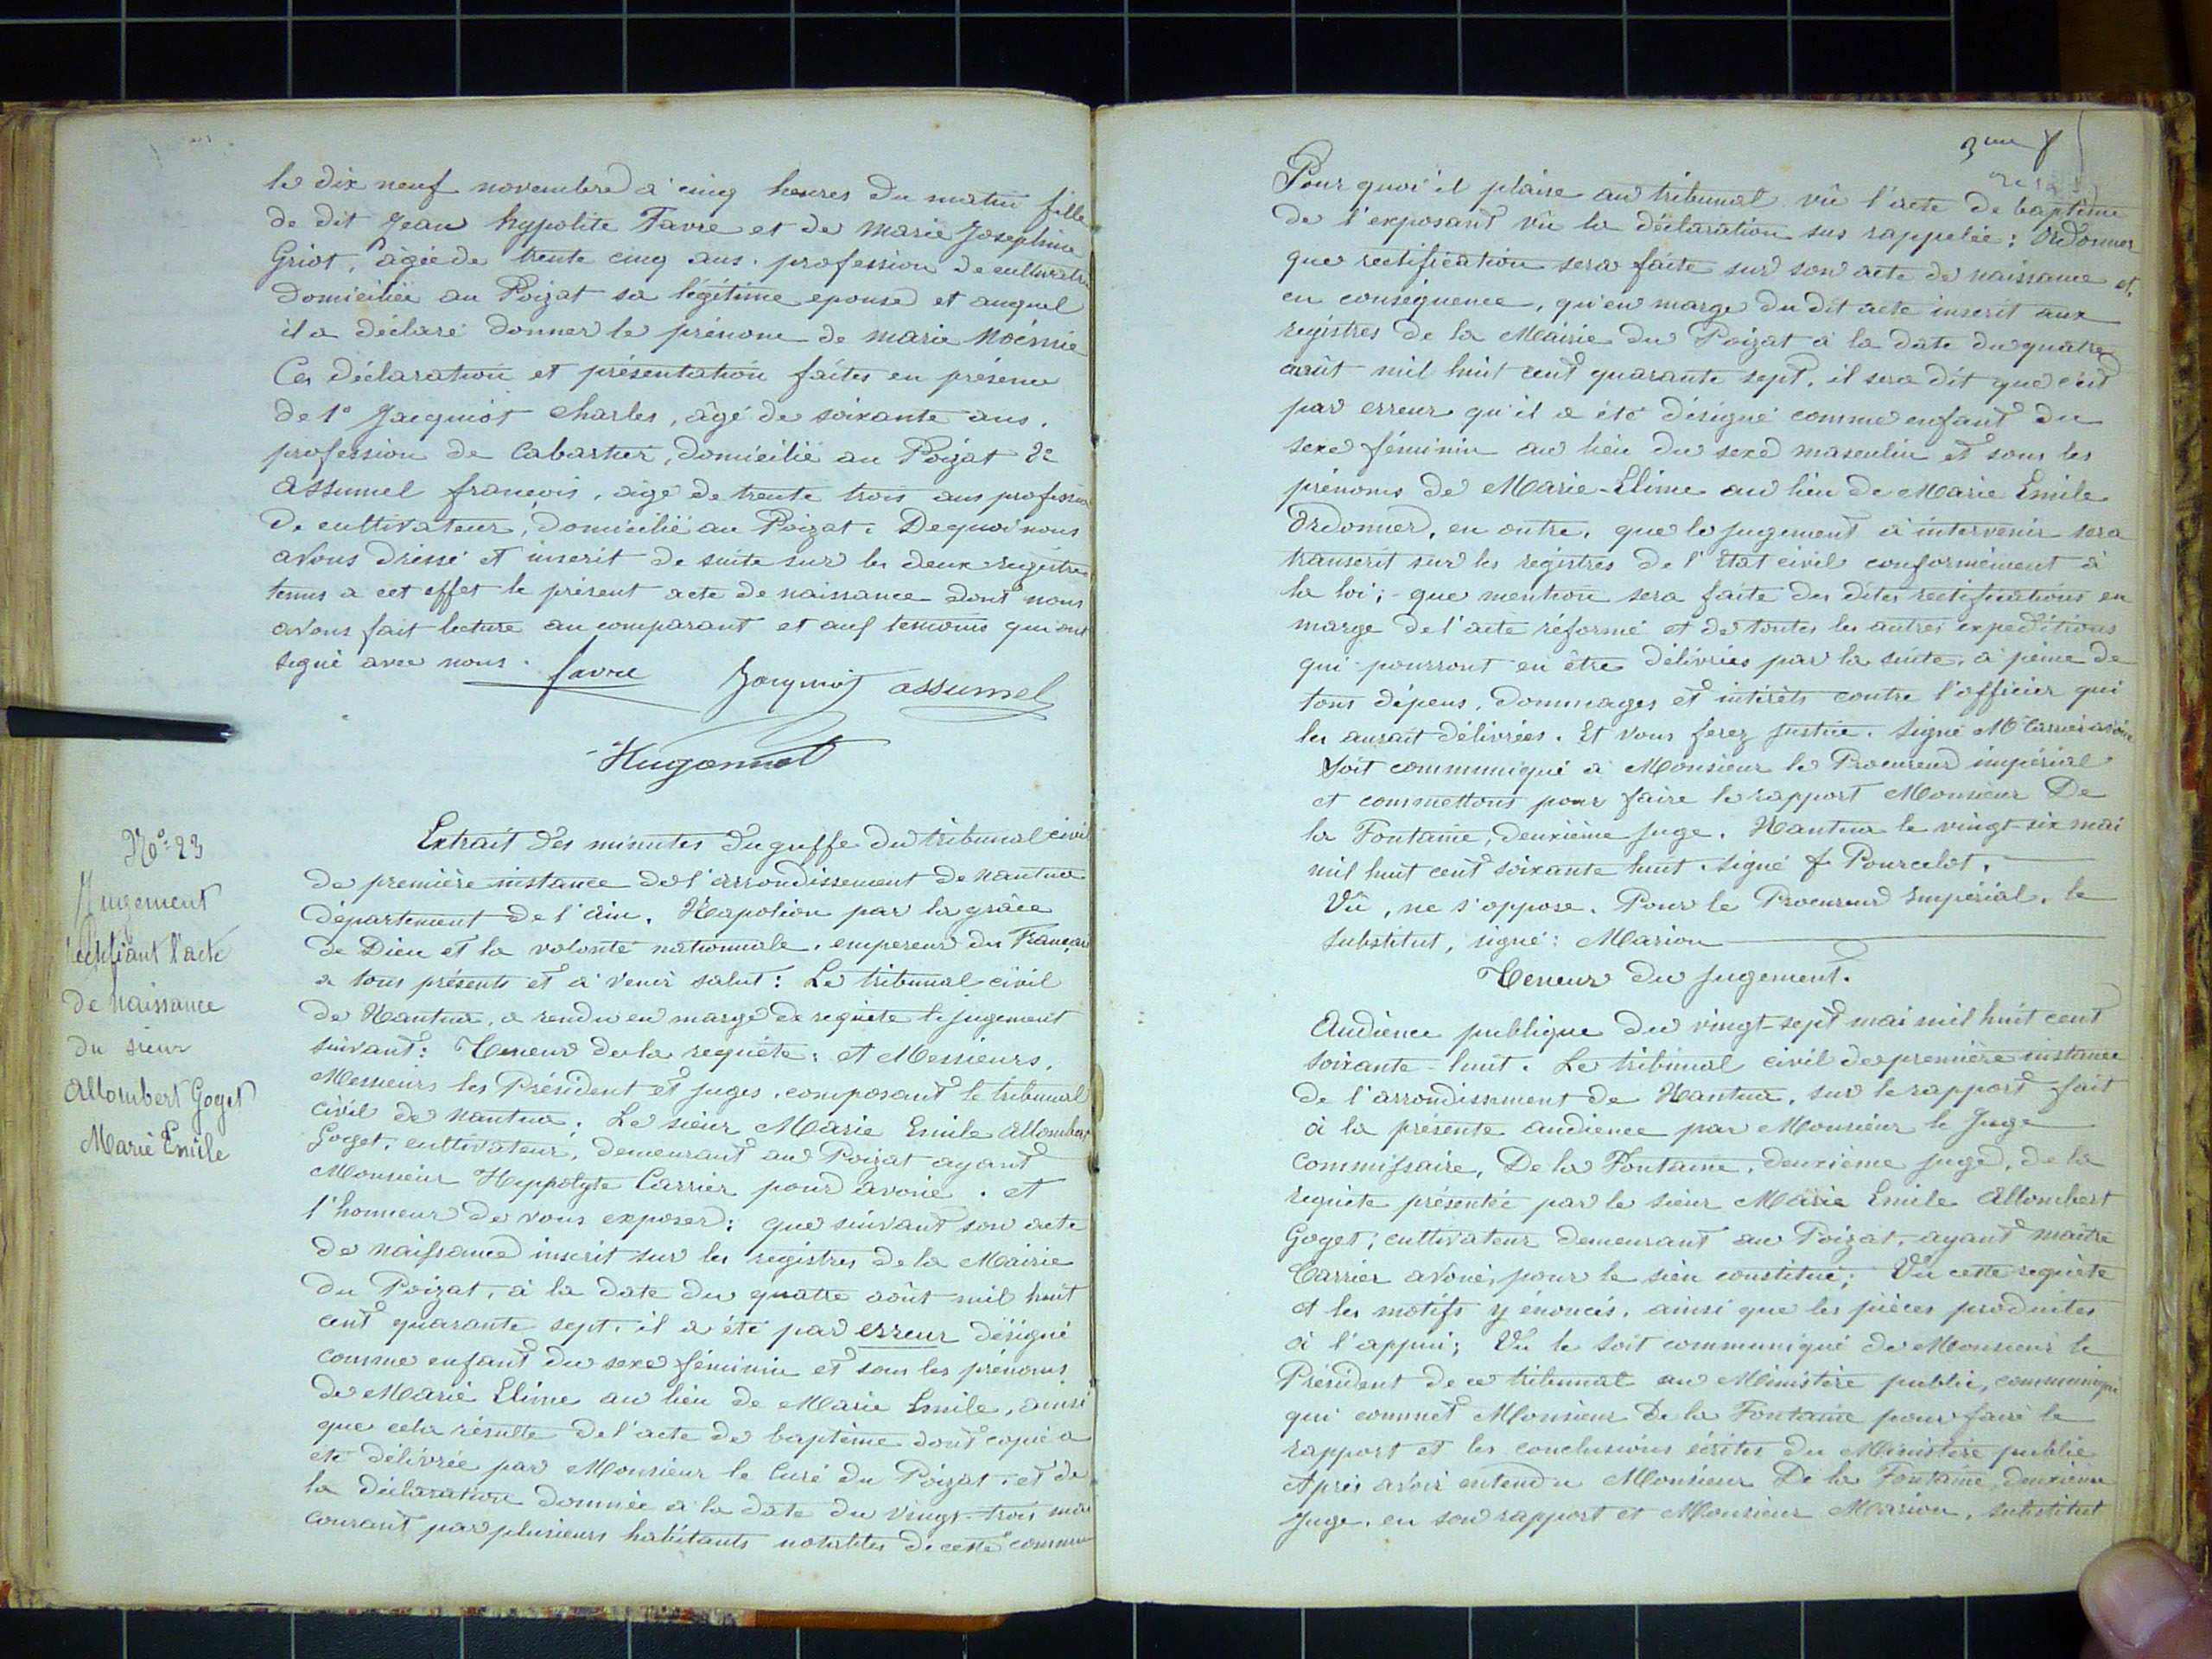 le dix neuf novembre a cinq heures du matin fille
de dit Jean hypolite Favre et de Marie Josephine
Griot, âgée de trente cinq ans. profession de cultivatrice
domiciliée au Poizat sa légitime epouse et auquel
il a déclaré donner le prénom de marie Noémie
Ces déclaration et présentation faites en présence
de 1° Jacquiot Charles, âgé de soixante ans.
profession de Cabartier, domicilié au Poizat 2e
Assumel françois, âgé de trente trois ans profession
de cultivateur, domicilié au Poizat. De quoi nous
avons dressé et inscrit de suite sur les deux registres
tenus a cet effet le présent acte de naissance dont nous
avons fait lecture au comparant et aux temoins qui ont
signé avec nous.
favre Jacquiot assumel
Hugonnet
No 23
Jugement
rectifiant l'acte
de naissance
du sieur
Allombert Goget
Marie Emile
Extrait des minutes du greffe du tribunal civil
de première instance de l'arrondissement de nantua
département de l'ain. Napoléon par la grâce
de Dieu et la volonté nationnale, empereur des Français
a tous présents et à venir salut: Le tribunal civil
de Nantua, a rendu en marge de requête le jugement
suivant: Teneur de la requête: et Messieurs,
Messieurs les Président et juges, composant le tribunal
civil de nantua; Le sieur Marie Emile Allombert
Goget, cultivateur, demeurant au Poizat ayant
Monsieur Hyppolyte Carrier pour avoué. et
l'honneur de vous exposer: que suivant son acte
de naissance inscrit sur les registres de la Mairie
du Poizat, à la date du quatre août mil huit
cent quarante sept, il a été par erreur désigné
comme enfant du sexe féminin et sous les prénoms
de Marie Elime au lieu de Marie Emile, ainsi
que cela résulte de l'acte de baptême dont copie a
été délivrée par Monsieur le Curé du Poizat, et de
la déclaration donnée a la date du vingt-trois mai
courant par plusieurs habitants notables de cette commune
3me
Pour quoi il plaise au tribunal vû l'acte de baptême
de l'exposant vû la déclaration sus rappelée; Ordonner
que rectification sera faite sur son acte de naissance et,
en conséquence, qu'en marge du dit acte inscrit aux
registres de la Mairie du Poizat à la date du quatre
août mil huit cent quarante sept, il sera dit que c'est
par erreur qu'il a été désigné comme enfant du
sexe féminin au lieu du sexe masculin et sous les
prénoms de Marie-Elime au lieu de Marie Emile
Ordonner, en outre, que le jugement à intervenir sera
transcrit sur les registres de l'état civil conformément à
la loi; que mention sera faite des dites rectifications en
marge de l'acte réformé et de toutes les autres expeditions
qui pourront en être délivrées par la suite, à peine de
tous dépens, dommages et intérêts contre l'officier qui
les aurait délivrées. Et vous ferez justice. Signé M Carrier avoué
Soit communiqué à Monsieur le Procureur impérial
et commettons pour faire le rapport Monsieur De
la Fontaine, deuxième juge. Nantua le vingt-six mai
mil huit cent soixante huit. signé f Pourcelot.
Vû, ne s'oppose. Pour le Procureur Impérial, le
substitut, signé: Marion
Teneur du jugement.
Audience publique du vingt-sept mai mil huit cent
soixante-huit. Le tribunal civil de première instance
de l'arrondissement de Nantua, sur le rapport fait
à la présente audience par Monsieur le Juge
Commissaire, De la Fontaine, deuxième juge, de la
requête présentée par le sieur Marie Emile Allombert
Goget; cultivateur demeurant au Poizat, ayant maître
Carrier avoué, pour le sien constitué; Vu cette requête
et les motifs y énoncés, ainsi que les pièces produites
à l'appui; Vu le soit communiqué de Monsieur le
Président de ce tribunal au Ministère public, communiqué
qui commet Monsieur De la Fontaine pour faire le
rapport et les conclusions écrites du Ministère public
Après avoir entendu Monsieur De la Fontaine, deuxième
juge, en son rapport et Monsieur Marion, substitut